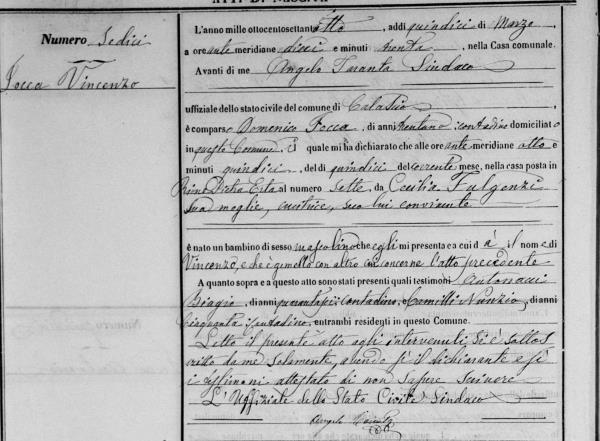 Numero Sedici
Vincenzo
L'anno mille ottocentosettantotto, addì quindici di Marzo
a ore ante meridiane dieci e minuti trenta, nella Casa comunale.
Avanti di me Angelo Taranta Sindaco
uffiziale dello stato civile del comune di Calascio
è comparso Domenico, di anni trentuno contadino domiciliato
in questo Comune, il quale mi ha dichiarato che alle ore ante meridiane otto e
minuti quindici, del dì quindici del corrente mese, nella casa posta in
al numero sette, da Cecilia Fulgenzi
sua moglie, cucitrice, seco lui convivente
è nato un bambino di sesso mascolino che egli mi presenta e a cui dà il nome di
Vincenzo, e che è gemello con altro cui concerne l'atto precedente
A quanto sopra e a questo atto sono stati presenti quali testimoni
Biagio, di anni contadino, e Camilli Nunzio, di anni
cinquanta, contadino, entrambi residenti in questo Comune.
Letto il presente atto agli intervenuti, si è sottos
critto da me solamente, avendo il dichiarante e
testimoni attestato di non sapere scrivere
L'Uffiziale dello Stato Civile Sindaco
Angelo Taranta